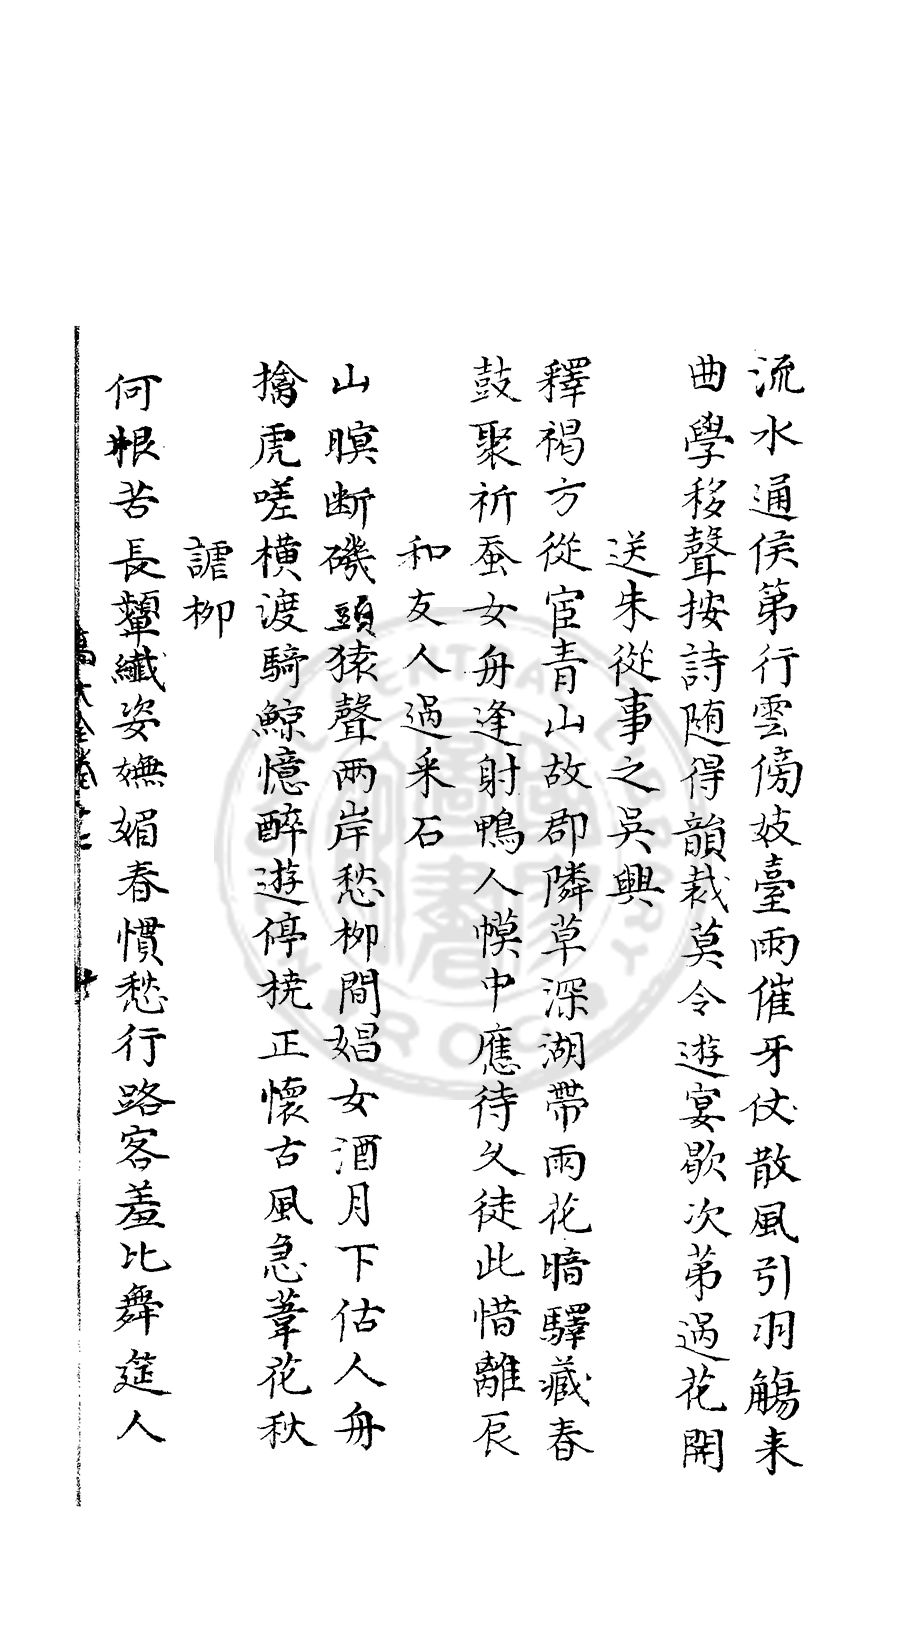 流水通侯第行雲傍妓臺雨催牙仗散風引羽觴来
曲學移聲按詩随得韻裁莫令遊宴歇次苐過花開
送朱從事之吳興
釋褐方從宦青山故郡隣草深湖帶雨花暗驛藏春
鼓聚祈蚕女舟逢射鴨人幙中應待久徒此惜離辰
和友人過采石
山暝断磯頭猿聲兩岸愁柳間娼女酒月下估人舟
擒虎嗟橫渡騎鯨憶醉遊停橈正懷古風急葦花秋
謔柳
何恨苦長顰纖姿嫵媚春慣愁行路客羞比舞筵人
髙大全卷十二